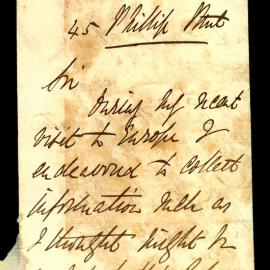 45 Phillip Street
Sir
During my recent
visit to Europe I
endeavored to collect
information such as
I thought might be